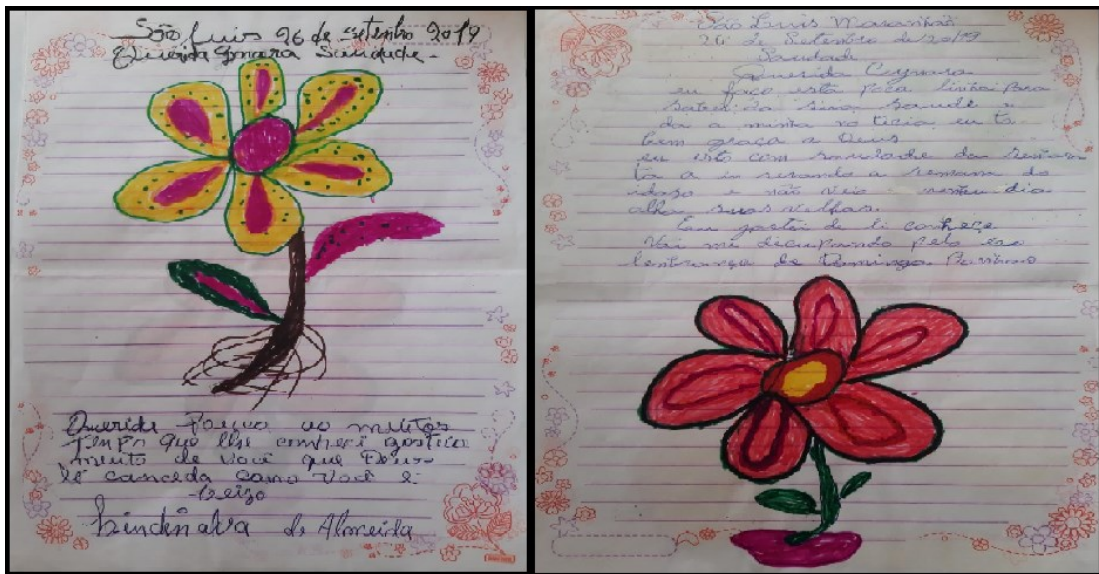 São Luis 26 de setembro 2019
Querida Gmara Saudade -
Querida pouco ao muitos
tempo que lhe conheci gostei
muito de você que Deus
lê conceda como você é
-beizo
Lindinalva de Almeida
São Luis Maranhão
26 de Setembro de 2019
Saudade
Querida
eu faço esta poca linhas para
saber da sua saude e
da a minha noticia eu to
bem graça a Deus
eu estó com saudade da
a semana do
idozo e não veio
olha suas velhas.
Eu gostei de li conhece
Vai mi discupando pelo ero
lembrança de Domingas